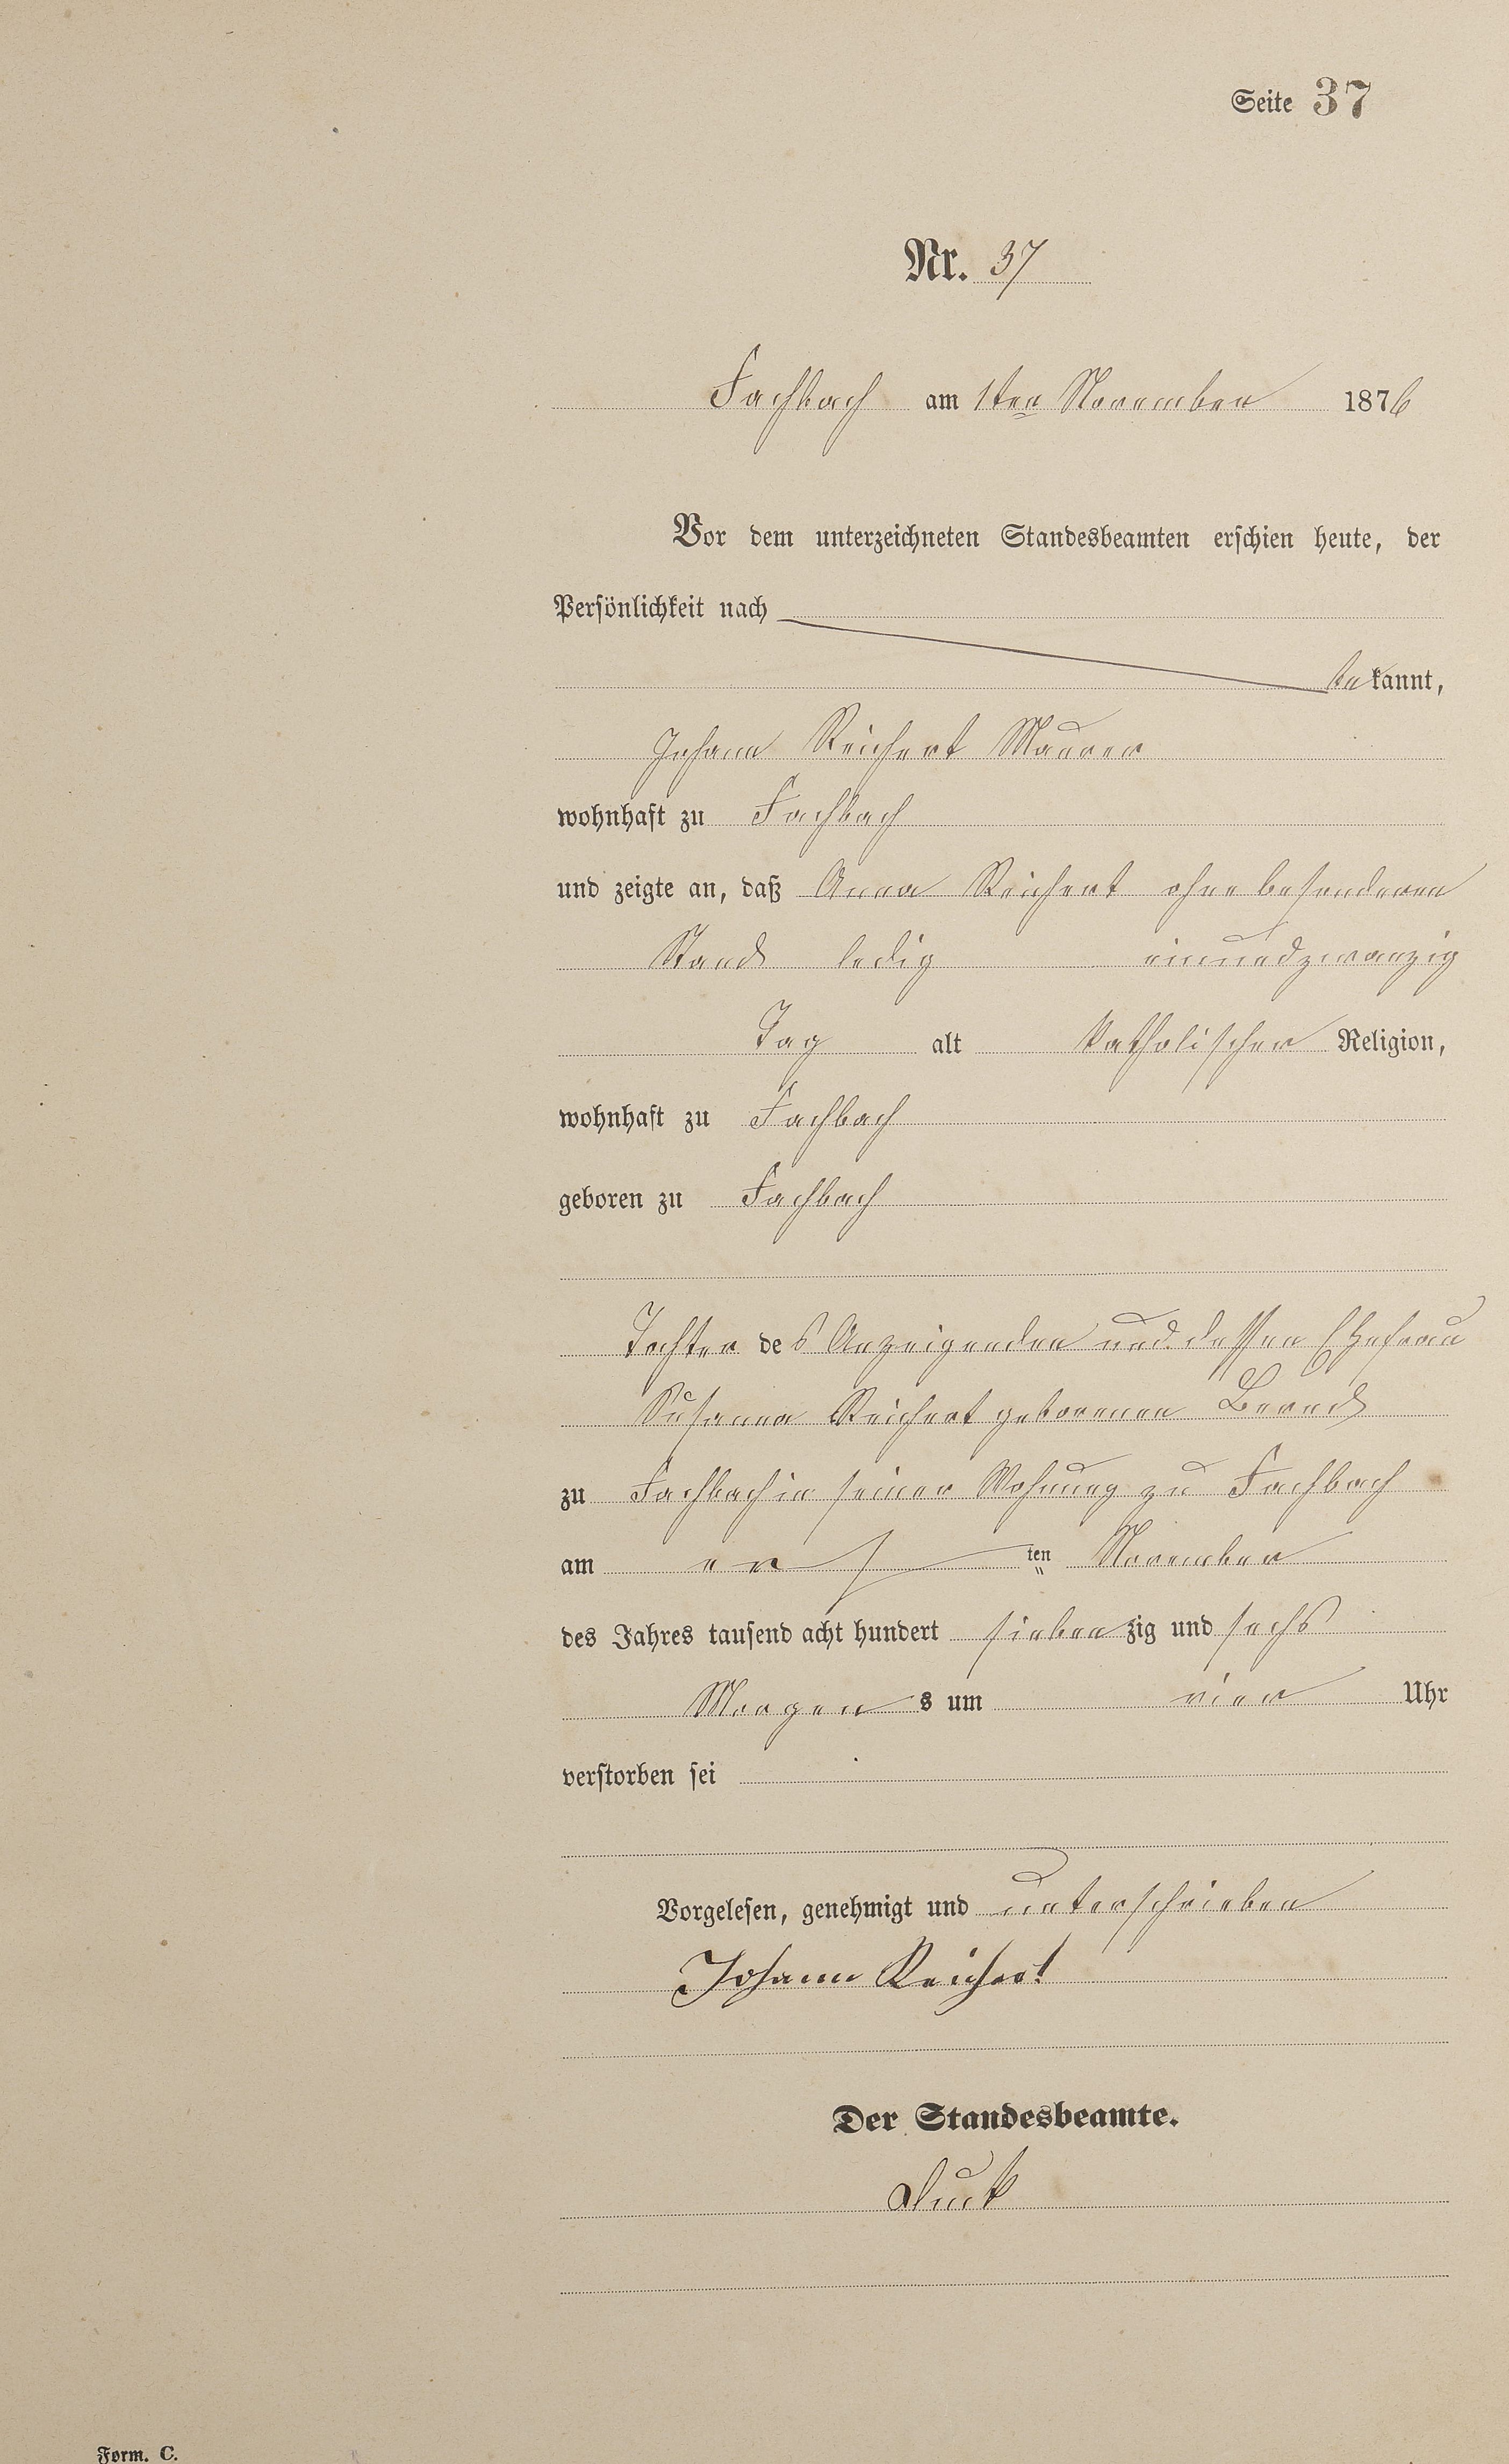 Seite 37
Nr. 37
Fachbach am 1ten November 1876
Vor dem unterzeichneten Standesbeamten erschien heute, der
Persönlichkeit nach
bekannt,
Johann Reichert Maurer
wohnhaft zu Fachbach
und zeigte an, daß Anna Reichert ohne besonderen
Stand ledig einundzwanzig
Tag alt katholischer Religion,
wohnhaft zu Fachbach
geboren zu Fachbach
Tochter des Anzeigenden und dessen Ehefrau
Susanna Reichert geborenen Bernd
zu Fachbach in seiner Wohnung zu Fachbach
am ers ten November
des Jahres tausend acht hundert siebenzig und sechs
Morgens um vier Uhr
verstorben sei
Vorgelesen, genehmigt und unterschrieben
Johann Reichert
Der Standesbeamte.
Form. C.